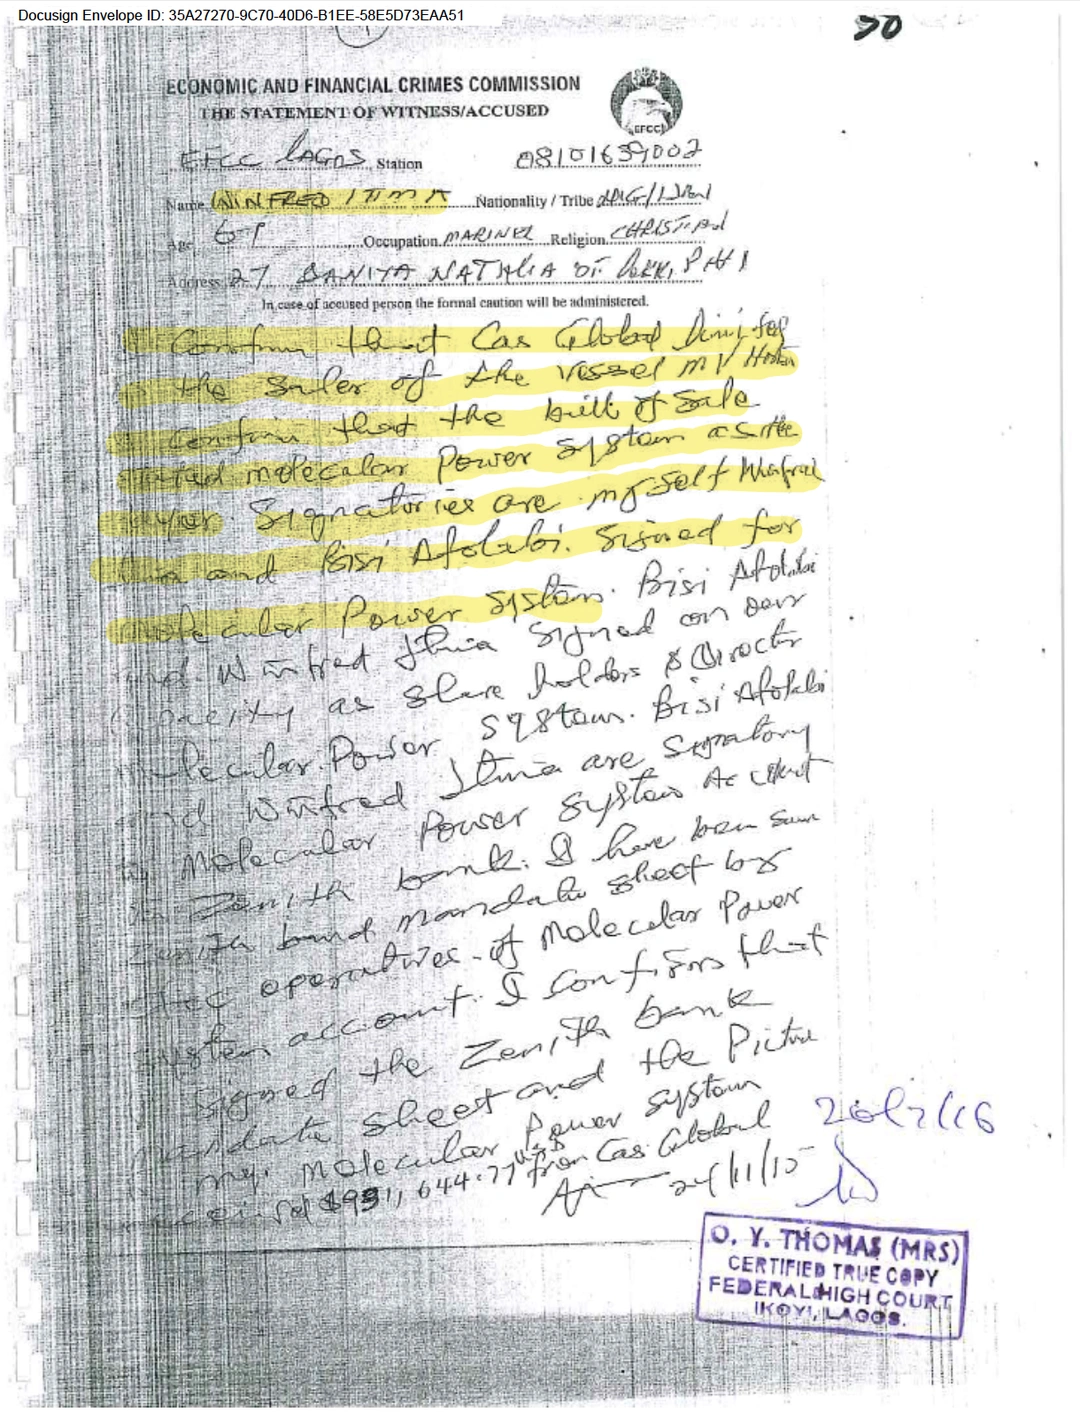 Docusign Envelope ID: 35A27270-9C70-40D6-B1EE-58E5D73EAA51
1
50
ECONOMIC AND FINANCIAL CRIMES COMMISSION
THE STATEMENT OF WITNESS/ACCUSED
EFCC
EFCC LAGOS Station 08101639002
Name WINFRED ITIMA Nationality / Tribe
Age Occupation MARINER Religion CHRISTIAN
Address 27
In case of accused person the formal caution will be administered.
Confirm that Cas Global Limited
the Saler of the vessel MV
Confirm that the bill of Sale
molecular Power System as the
Signatories are myself Winfred
and Bisi Afolabi. Signed for
Molecular Power System. Bisi Afolabi
and Winfred Itima Signed on our
capacity as Share holders & Director
Molecular Power System. Bisi Afolabi
and Winfred Itima are Signatory
to Molecular Power System Account
in Zenith bank. I have been
Zenith mandate sheet by
operatives of Molecular Power
System account. I confirm that
Signed the Zenith bank
mandate sheet and the Picture
my Molecular Power System
644.77 from Cas Global
24/11/15
20/7/16
O. Y. THOMAS (MRS)
CERTIFIED TRUE COPY
FEDERAL HIGH COURT
IKOYI, LAGOS.